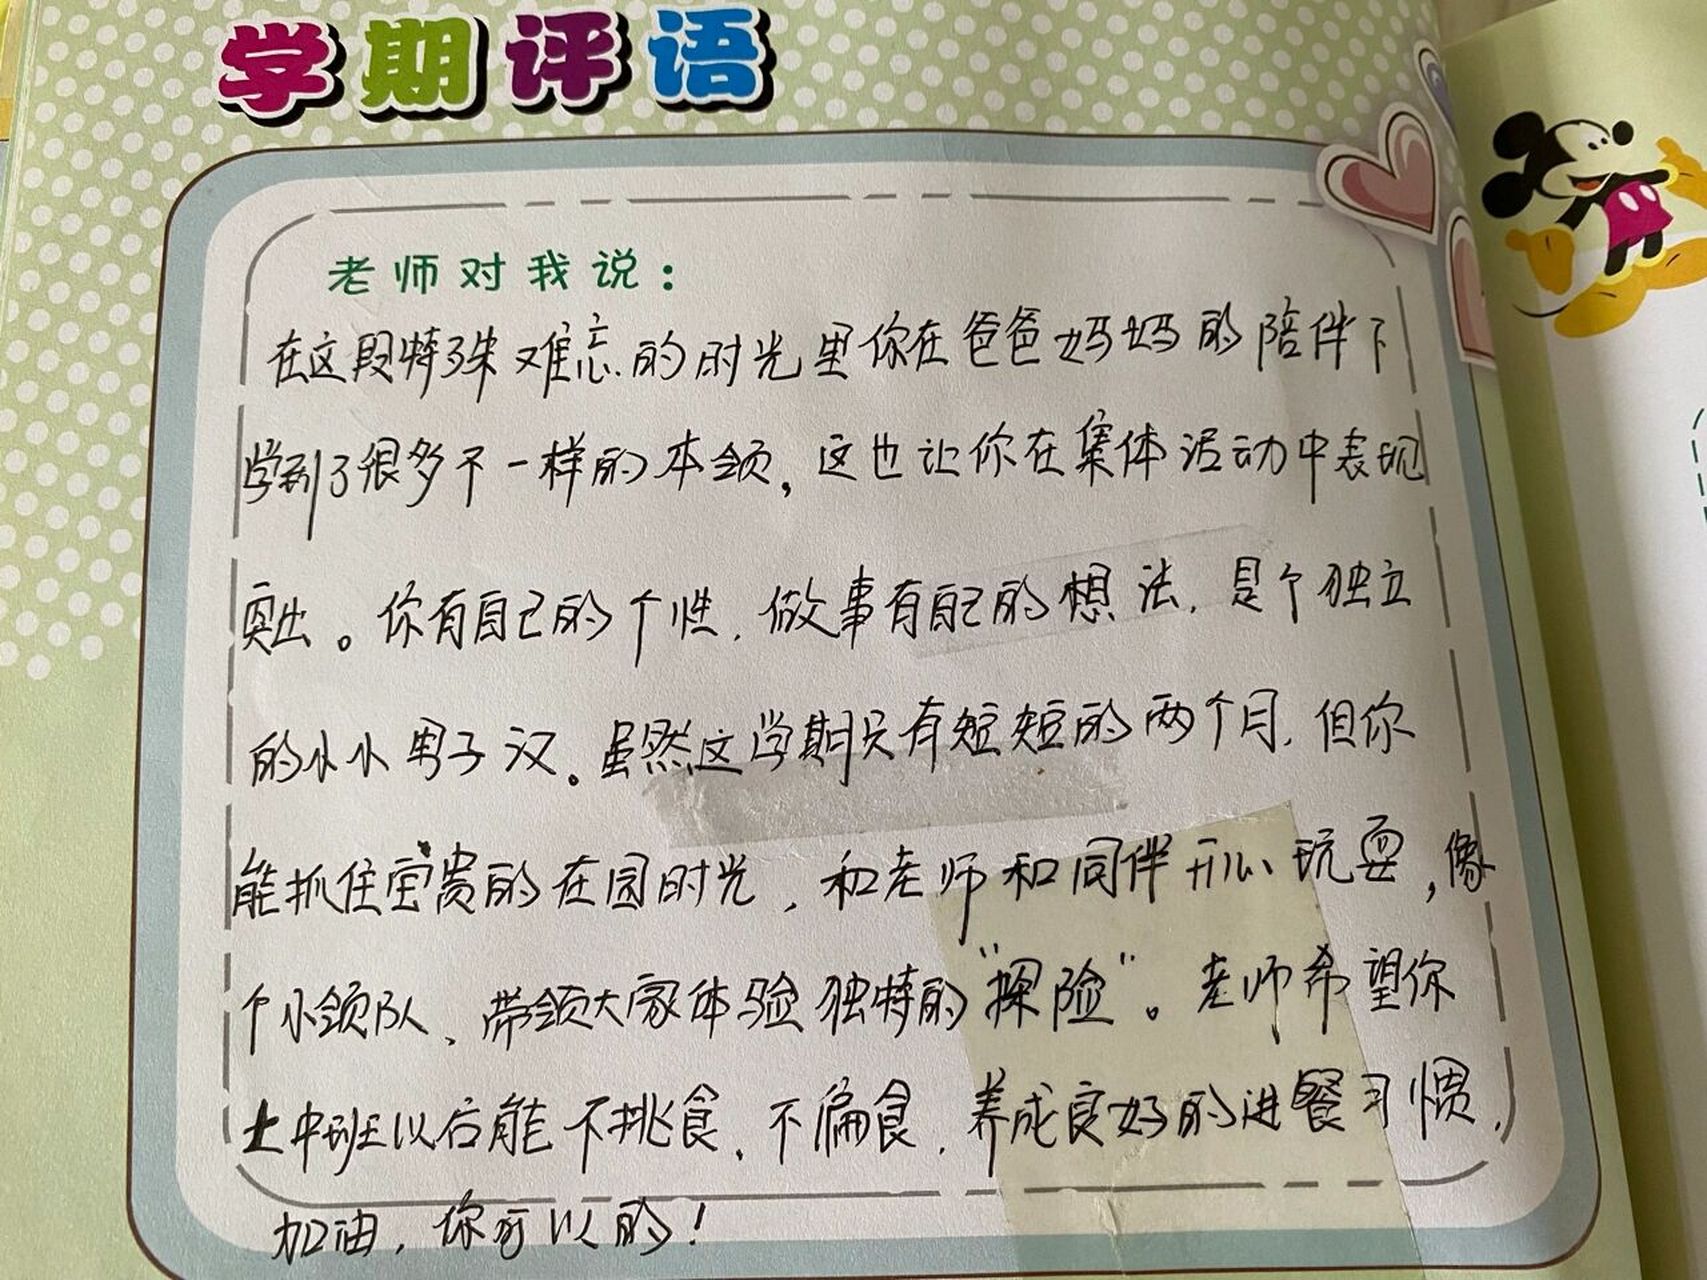 学期评语
老师对我说：
在这段特殊难忘的时光里你在爸爸妈妈的陪伴下
学到了很多不一样的本领，这也让你在集体活动中表现
突出。你有自己的个性，做事有自己的想法，是个独立
的小小男子汉。虽然这学期只有短短的两个月，但你
能抓住宝贵的在园时光，和老师和同伴开心玩耍，像
个小领队、带领大家体验独特的“探险”。老师希望你
上中班以后能不挑食、不偏食，养成良好的进餐习惯，
加油，你可以的！